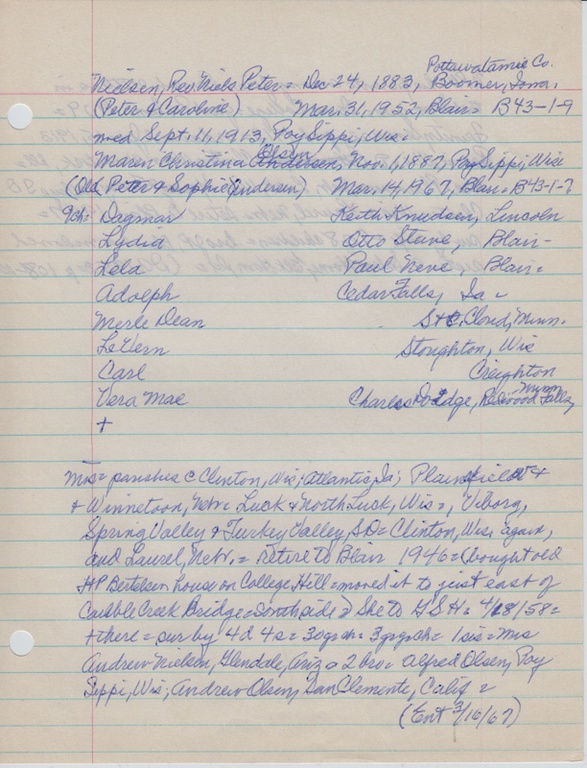 Pottawatamie Co.
Nielsen, Rev. Niels Peter = Dec 24, 1883, Boomer, Iowa.
(Peter & Caroline) Mar. 31, 1952, Blair = B43-1-9
med Sept. 11, 1913, Poy Sippi, Wis =
Olsen
Maren Christina Andersen, Nov. 1, 1887, Poy Sippi, Wisc
(Ole Peter & Sophie Andersen) Mar. 14, 1967, Blair = B43-1-7
9ch: Dagmar Keith Knudsen, Lincoln
Lydia Otto Steive, Blair -
Lela Paul Neve, Blair =
Adolph Cedar Falls, Ia =
Merle Dean St. Cloud, Minn.
LeVern Stoughton, Wis
Carl Creighton
Vera Mae Charles Dodge, Redwood Falls, Minn
+
Mos = parishes c Clinton, Wis; Atlantic, Ia; Plainfield
+ Winnetoon, Nebr = Luck & North Luck, Wis =, Viborg,
Spring Valley & Turkey Valley, SD = Clinton, Wis, again,
and Laurel, Nebr. = retire to Blair 1946 = (bought old
HP Bertelsen house on College Hill = moved it to just east of
Cauble Creek Bridge = South side) She to G.S.H. 4/28/58 =
+ there = sur by 4d 4s = 30grch = 3grgrch = 1 sis = Mrs
Andrew Nielsen, Glendale, Ariz = 2 bro = Alfred Olsen, Poy
Sippi, Wis; Andrew Olsen, San Clemente, Calif =
(Ent 3/16/67)